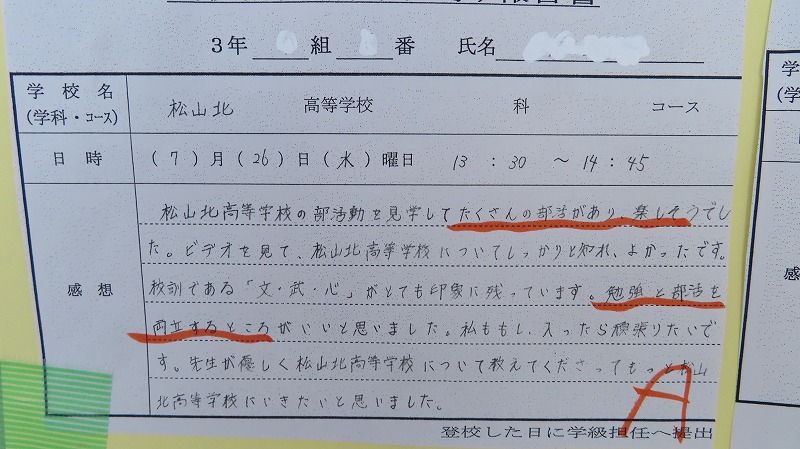 3年 組 番 氏名
学校名 (学科・コース) 松山北 高等学校 科 コース
日時 (7)月(26)日(水)曜日 13:30 ~14:45
感想
松山北高等学校の部活動を見学してたくさんの部活があり、楽しそうでし
た。ビデオを見て、松山北高等学校についてしっかりと知れ、よかったです。
校訓である「文・武・心」がとても印象に残っています。勉強と部活を
両立するところがいいと思いました。私ももし、入ったら頑張りたいで
す。先生が優しく松山北高等学校について教えてくださってもっと松山
北高等学校にいきたいと思いました。
A
登校した日に学級担任へ提出
学
(学
感